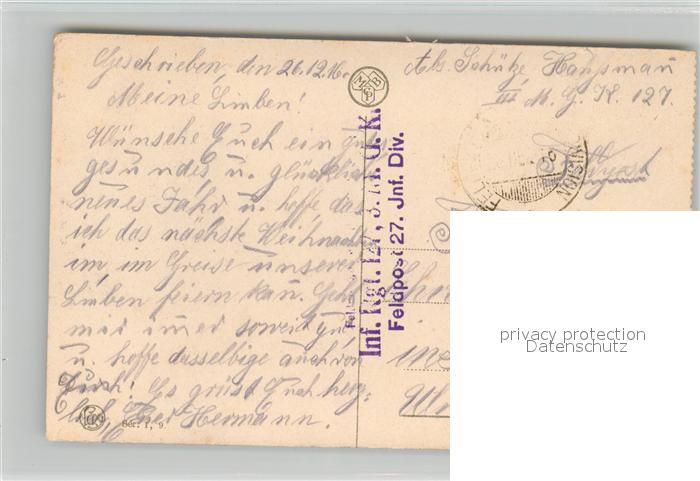 Geschrieben, den 26.12.16.
Meine Linben!
Wünsche Euch ein gutes
gesundes u. glücklich
neues Jahr u. hoffe das
ich das nächste Weihnacht
im im Greise unserer
Linben feiern kan. Geht
mir imer soweit gut
u. hoffe dasselbige auch von
Euch! Es grüst Euch herz-
lich, Euer Hermann.
Ser. 1, 9.
Abs. Schütze Hausman
III M. G. K. 127.
Feldpost
Inf. Rgt. 127, 3. M. G. K.
Feldpost 27. Jnf. Div.
privacy protection
Datenschutz